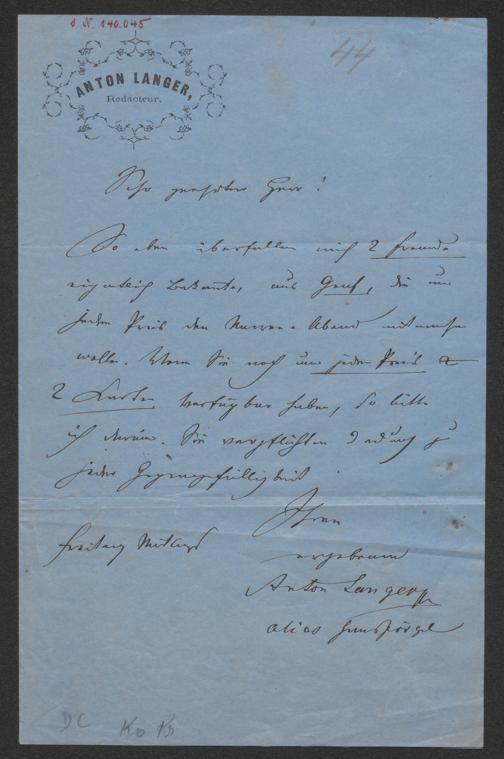 I. N. 140.045
44
ANTON LANGER,
Redacteur.
Sehr geehrter Herr!
So eben überfallen mich 2 Freunde
eigentlich Bekannte, aus Genf, die um
jeden Preis den Narren-Abend mitmachen
wollen. Wenn Sie noch um jeden Preis
2 Karten verfügbar haben, so bitte
ich darum. Sie verpflichten dadurch zu
jeder Gegengefälligkeit
Ihren
Freitag Mittags
ergebenen
Anton Langer
alias Hans Jörgel
DC Ko Kr